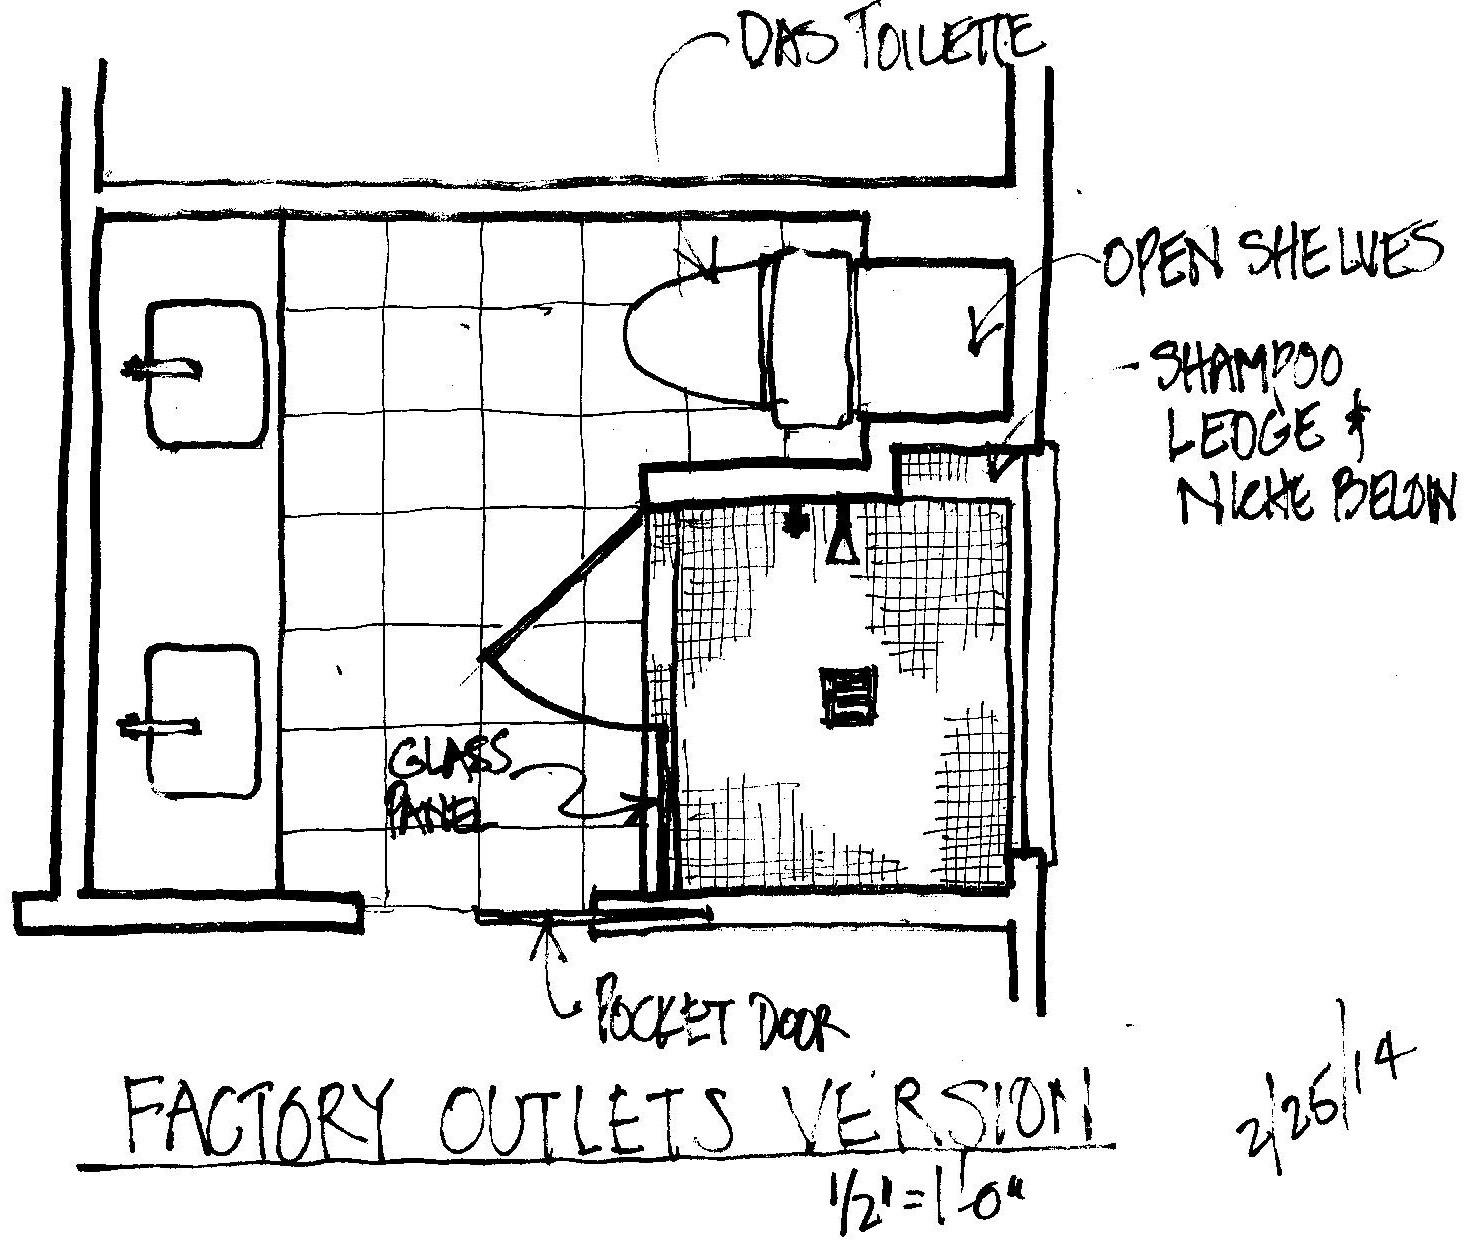 DAS TOILETTE
OPEN SHELVES
SHAMPOO
LEDGE &
NICHE BELOW
GLASS
PANEL
POCKET DOOR
FACTORY OUTLETS VERSION
1/2" = 1'-0"
2/26/14